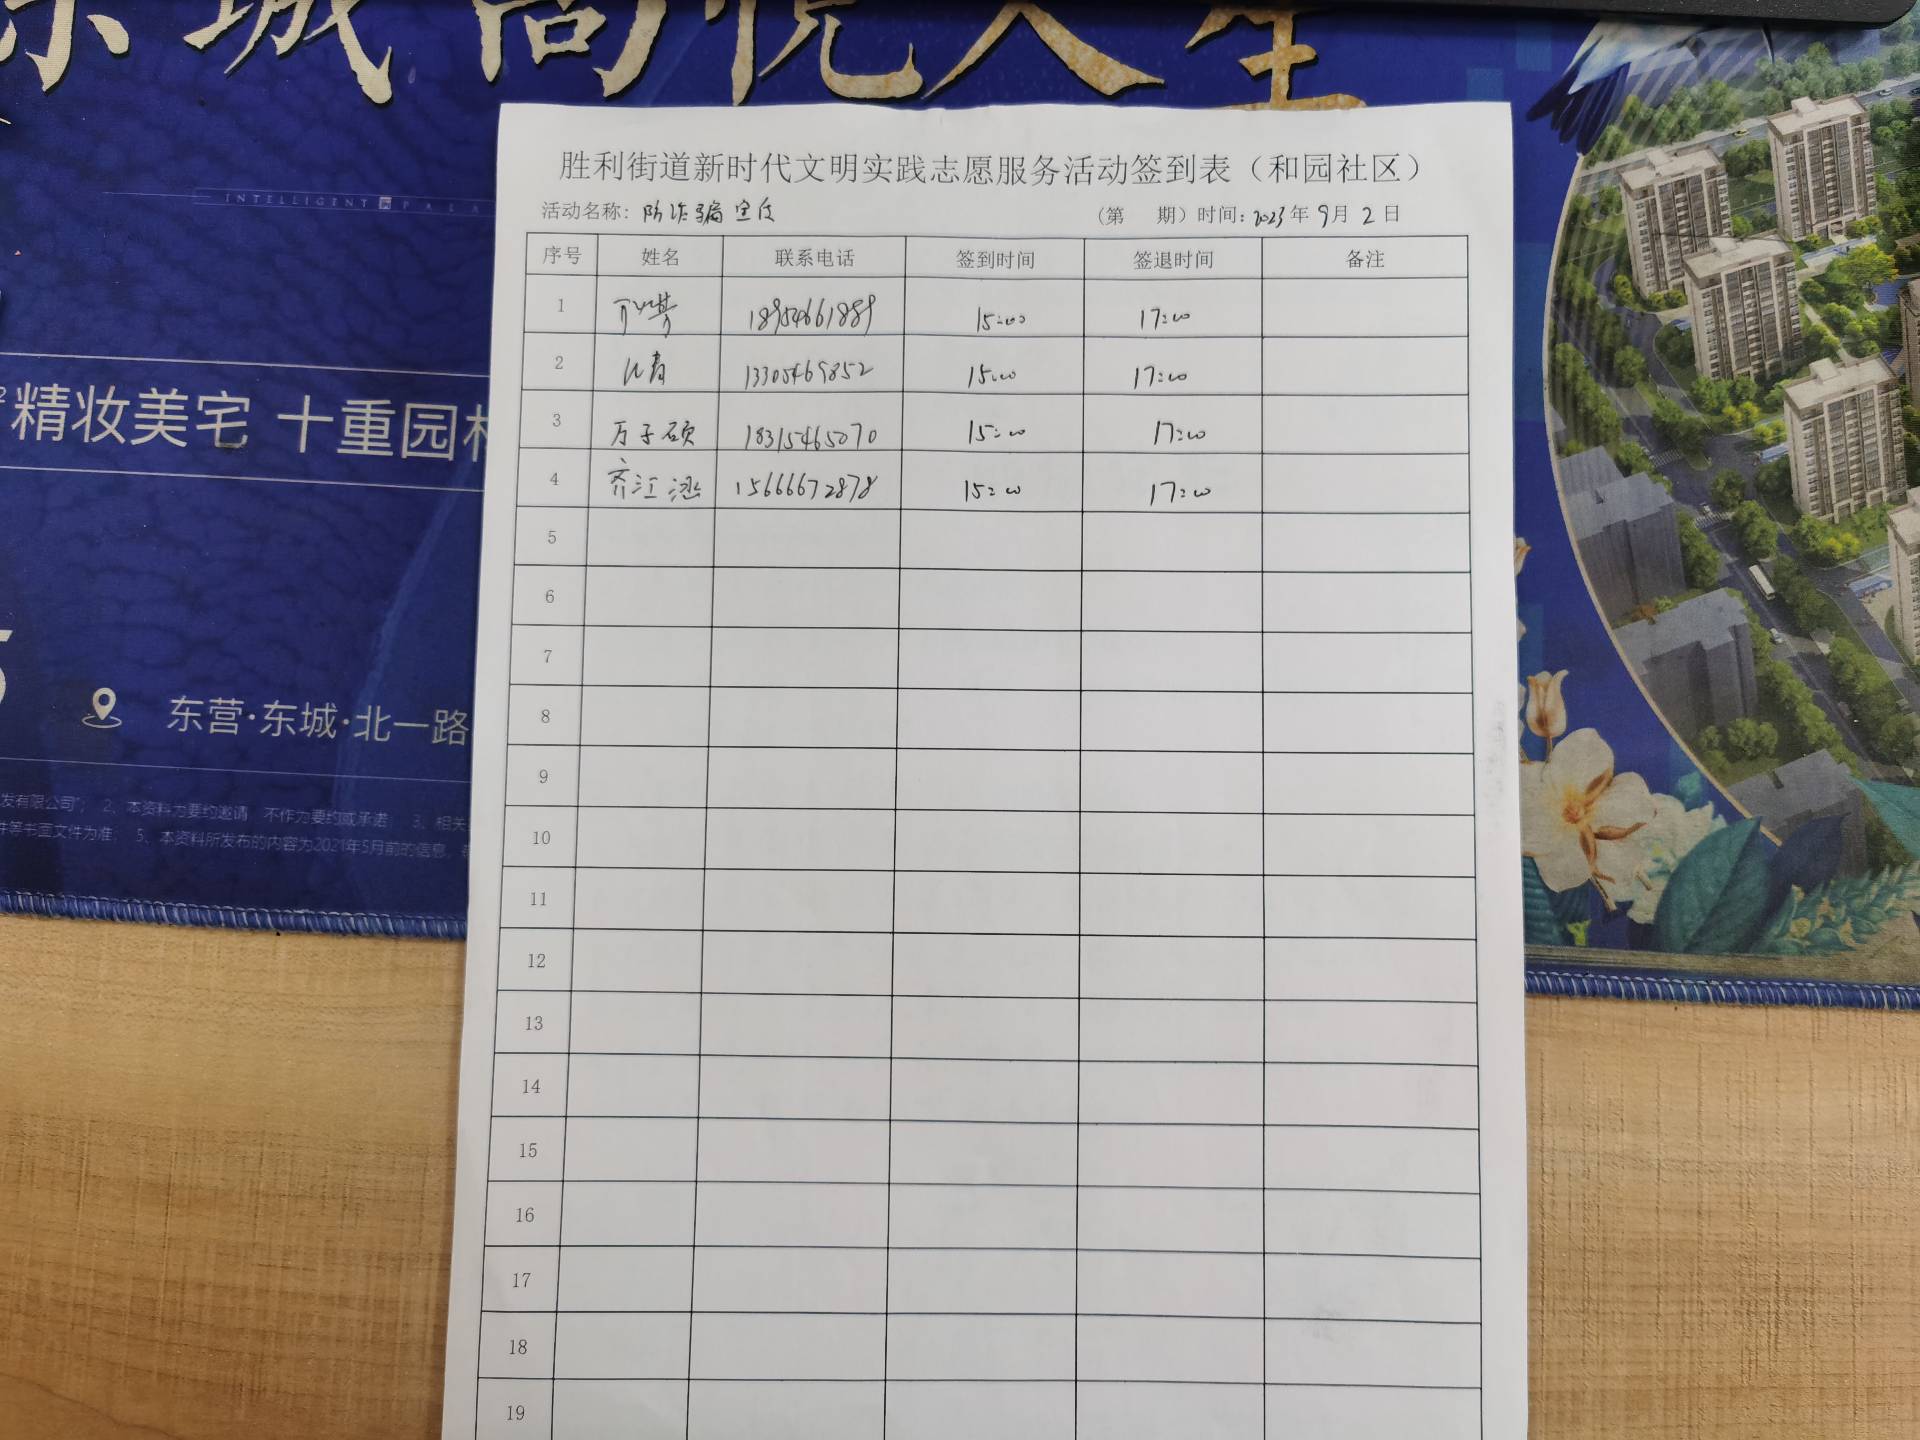 东城 尚悦人生
INTELLIGENT PALA
精妆美宅 十重园林
东营·东城·北一路
发有限公司”； 2、本资料为要约邀请 不作为要约或承诺； 3、相关
件等书面文件为准； 5、本资料所发布的内容为2021年5月前的信息，
胜利街道新时代文明实践志愿服务活动签到表（和园社区）
活动名称：防诈骗宣传 （第 期）时间：2023年9月2日
序号 姓名 联系电话 签到时间 签退时间 备注
1 18954661889 15:00 17:00
2 13305469852 15:00 17:00
3 万子硕 18315465070 15:00 17:00
4 齐江涵 15666672878 15:00 17:00
5
6
7
8
9
10
11
12
13
14
15
16
17
18
19